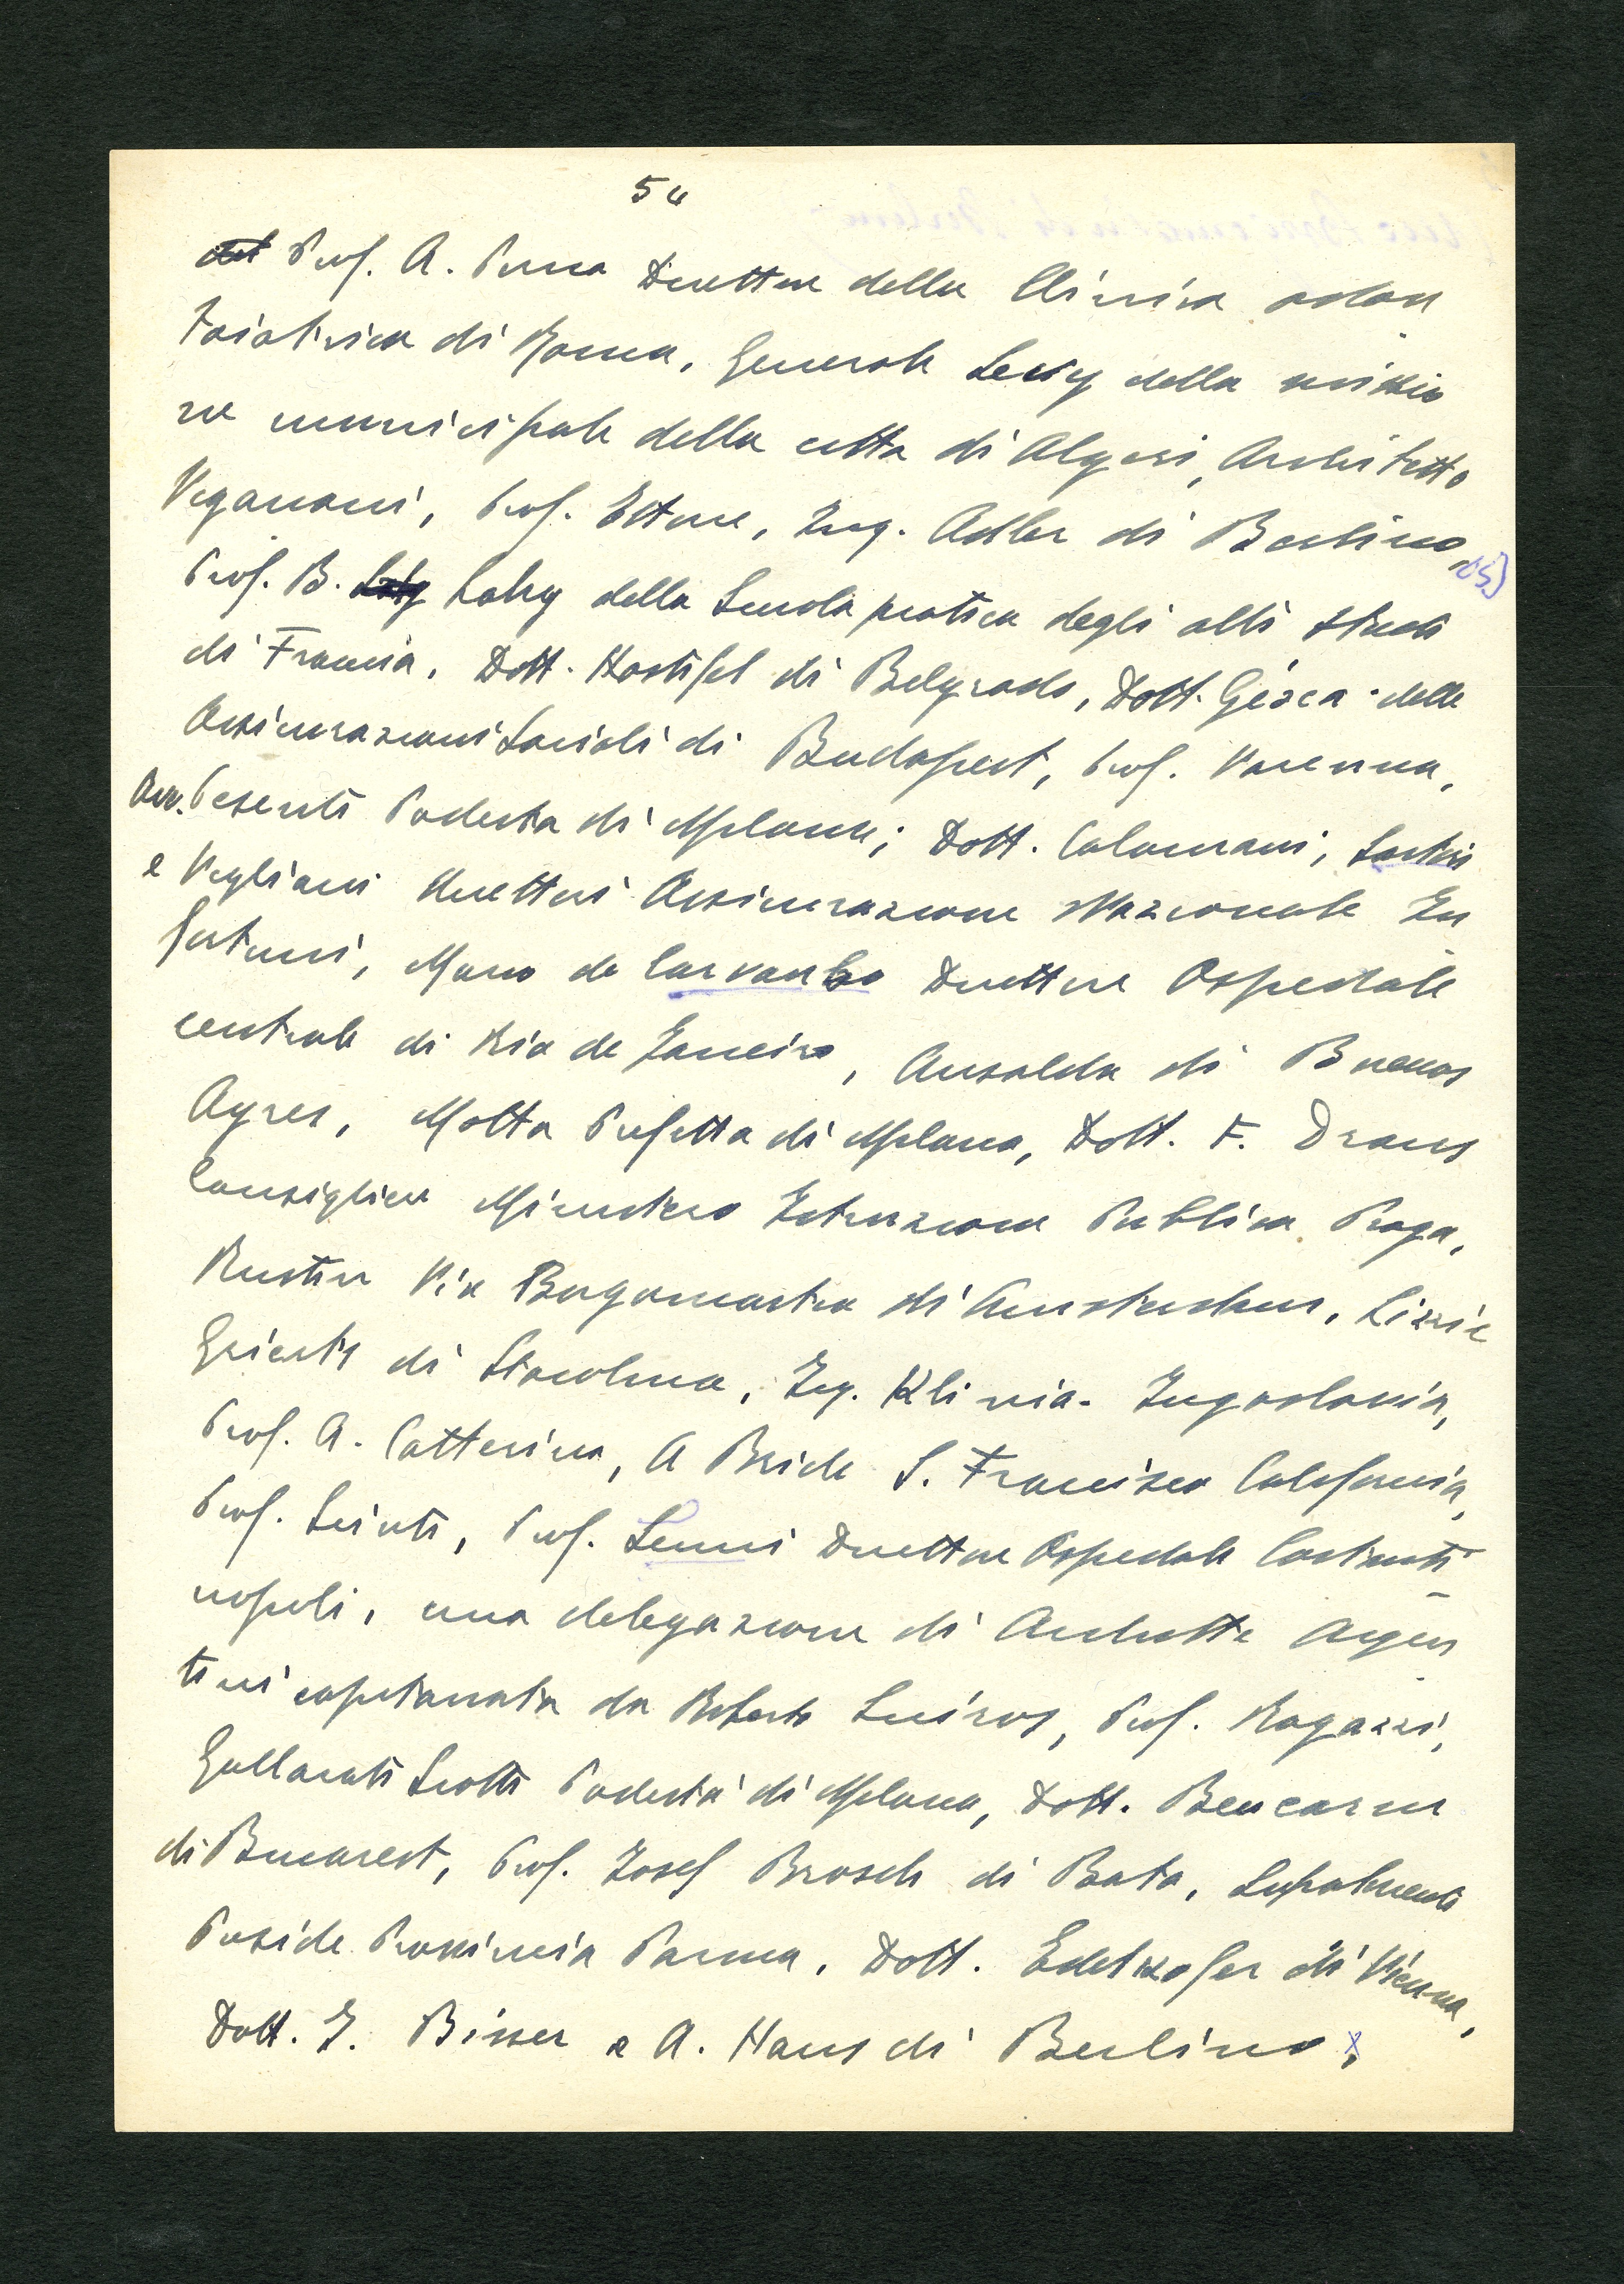 54
Prof. A. Perna Direttore della Clinica odon
toiatrica di Roma, Generale Levy della missio
ne municipale della citta di Algeri, Architetto
Veganoni, Prof. Ettore, Ing. Adler di Berlino,
Prof. B. Lahy della Scuola pratica degli alti studi
di Francia, Dott. Kostisel di Belgrado, Dott. Gésca delle
Assicurazioni Sociali di Budapest, Prof. Varenna,
Avv. Pesenti Podesta di Milano; Dott. Calamani, Sartori
e Vigliani direttori Assicurazione Nazionale In
fortuni, Mario de Carvanho Direttore Ospedale
centrale di Rio de Janeiro, Ansaldo di Buenos
Ayres, Motta Prefetto di Milano, Dott. F. Drans
Consigliere Ministero Istruzione Publica Praga,
Vix Borgomastro di Amsterdam, Lizzie
di Stocolma, Ing. Klinia. Jugoslavia,
Prof. A. Catterina, A Bride S. Francisco California,
Prof. Scinti, Prof. Senni Direttore Ospedale Costanti
nopoli, una delegazione di Architetti Argen
tini capitanata da Roberto Quiros, Prof. Ragazzi,
Gallarati Scotti Podestà di Milano, Dott. Bencarm
di Bucarest, Prof. Josef Brosch di Bata,
Preside Provincia Parma, Dott. Edelhofer di Vienna,
Dott. J. Bisser e A. Hans di Berlino;